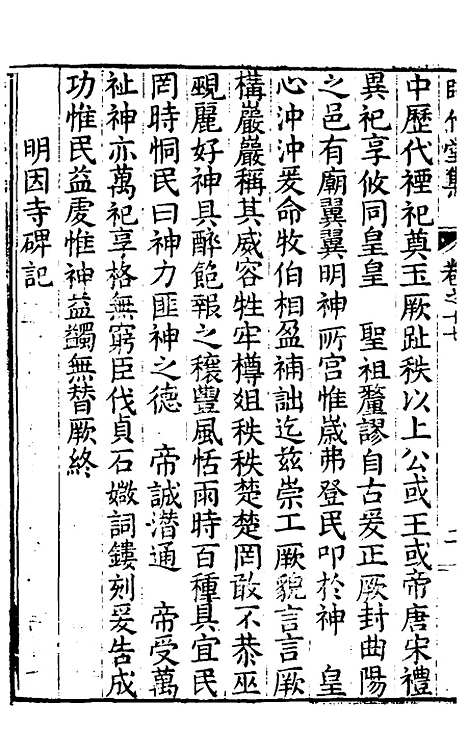 卷之十七
中歷代禋祀奠玉厥趾秩以上公或王或帝唐宋禮
異祀享攸同皇皇　聖祖釐謬自古爰正厥封曲陽
之邑有廟翼翼明神所宮惟歲弗登民叩於神　皇
心沖沖爰命牧伯相盈補詘迄兹崇工厥貌言言厥
構嚴嚴稱其威容牲牢樽俎秩秩楚楚罔敢不恭巫
覡麗好神具醉飽報之穰豐風恬雨時百種具宜民
罔時恫民曰神力匪神之德　帝誠潛通　帝受萬
祉神亦萬祀享格無窮臣伐貞石媺詞鏤刻爰告成
功惟民益虔惟神益蠲無替厥終
明因寺碑記